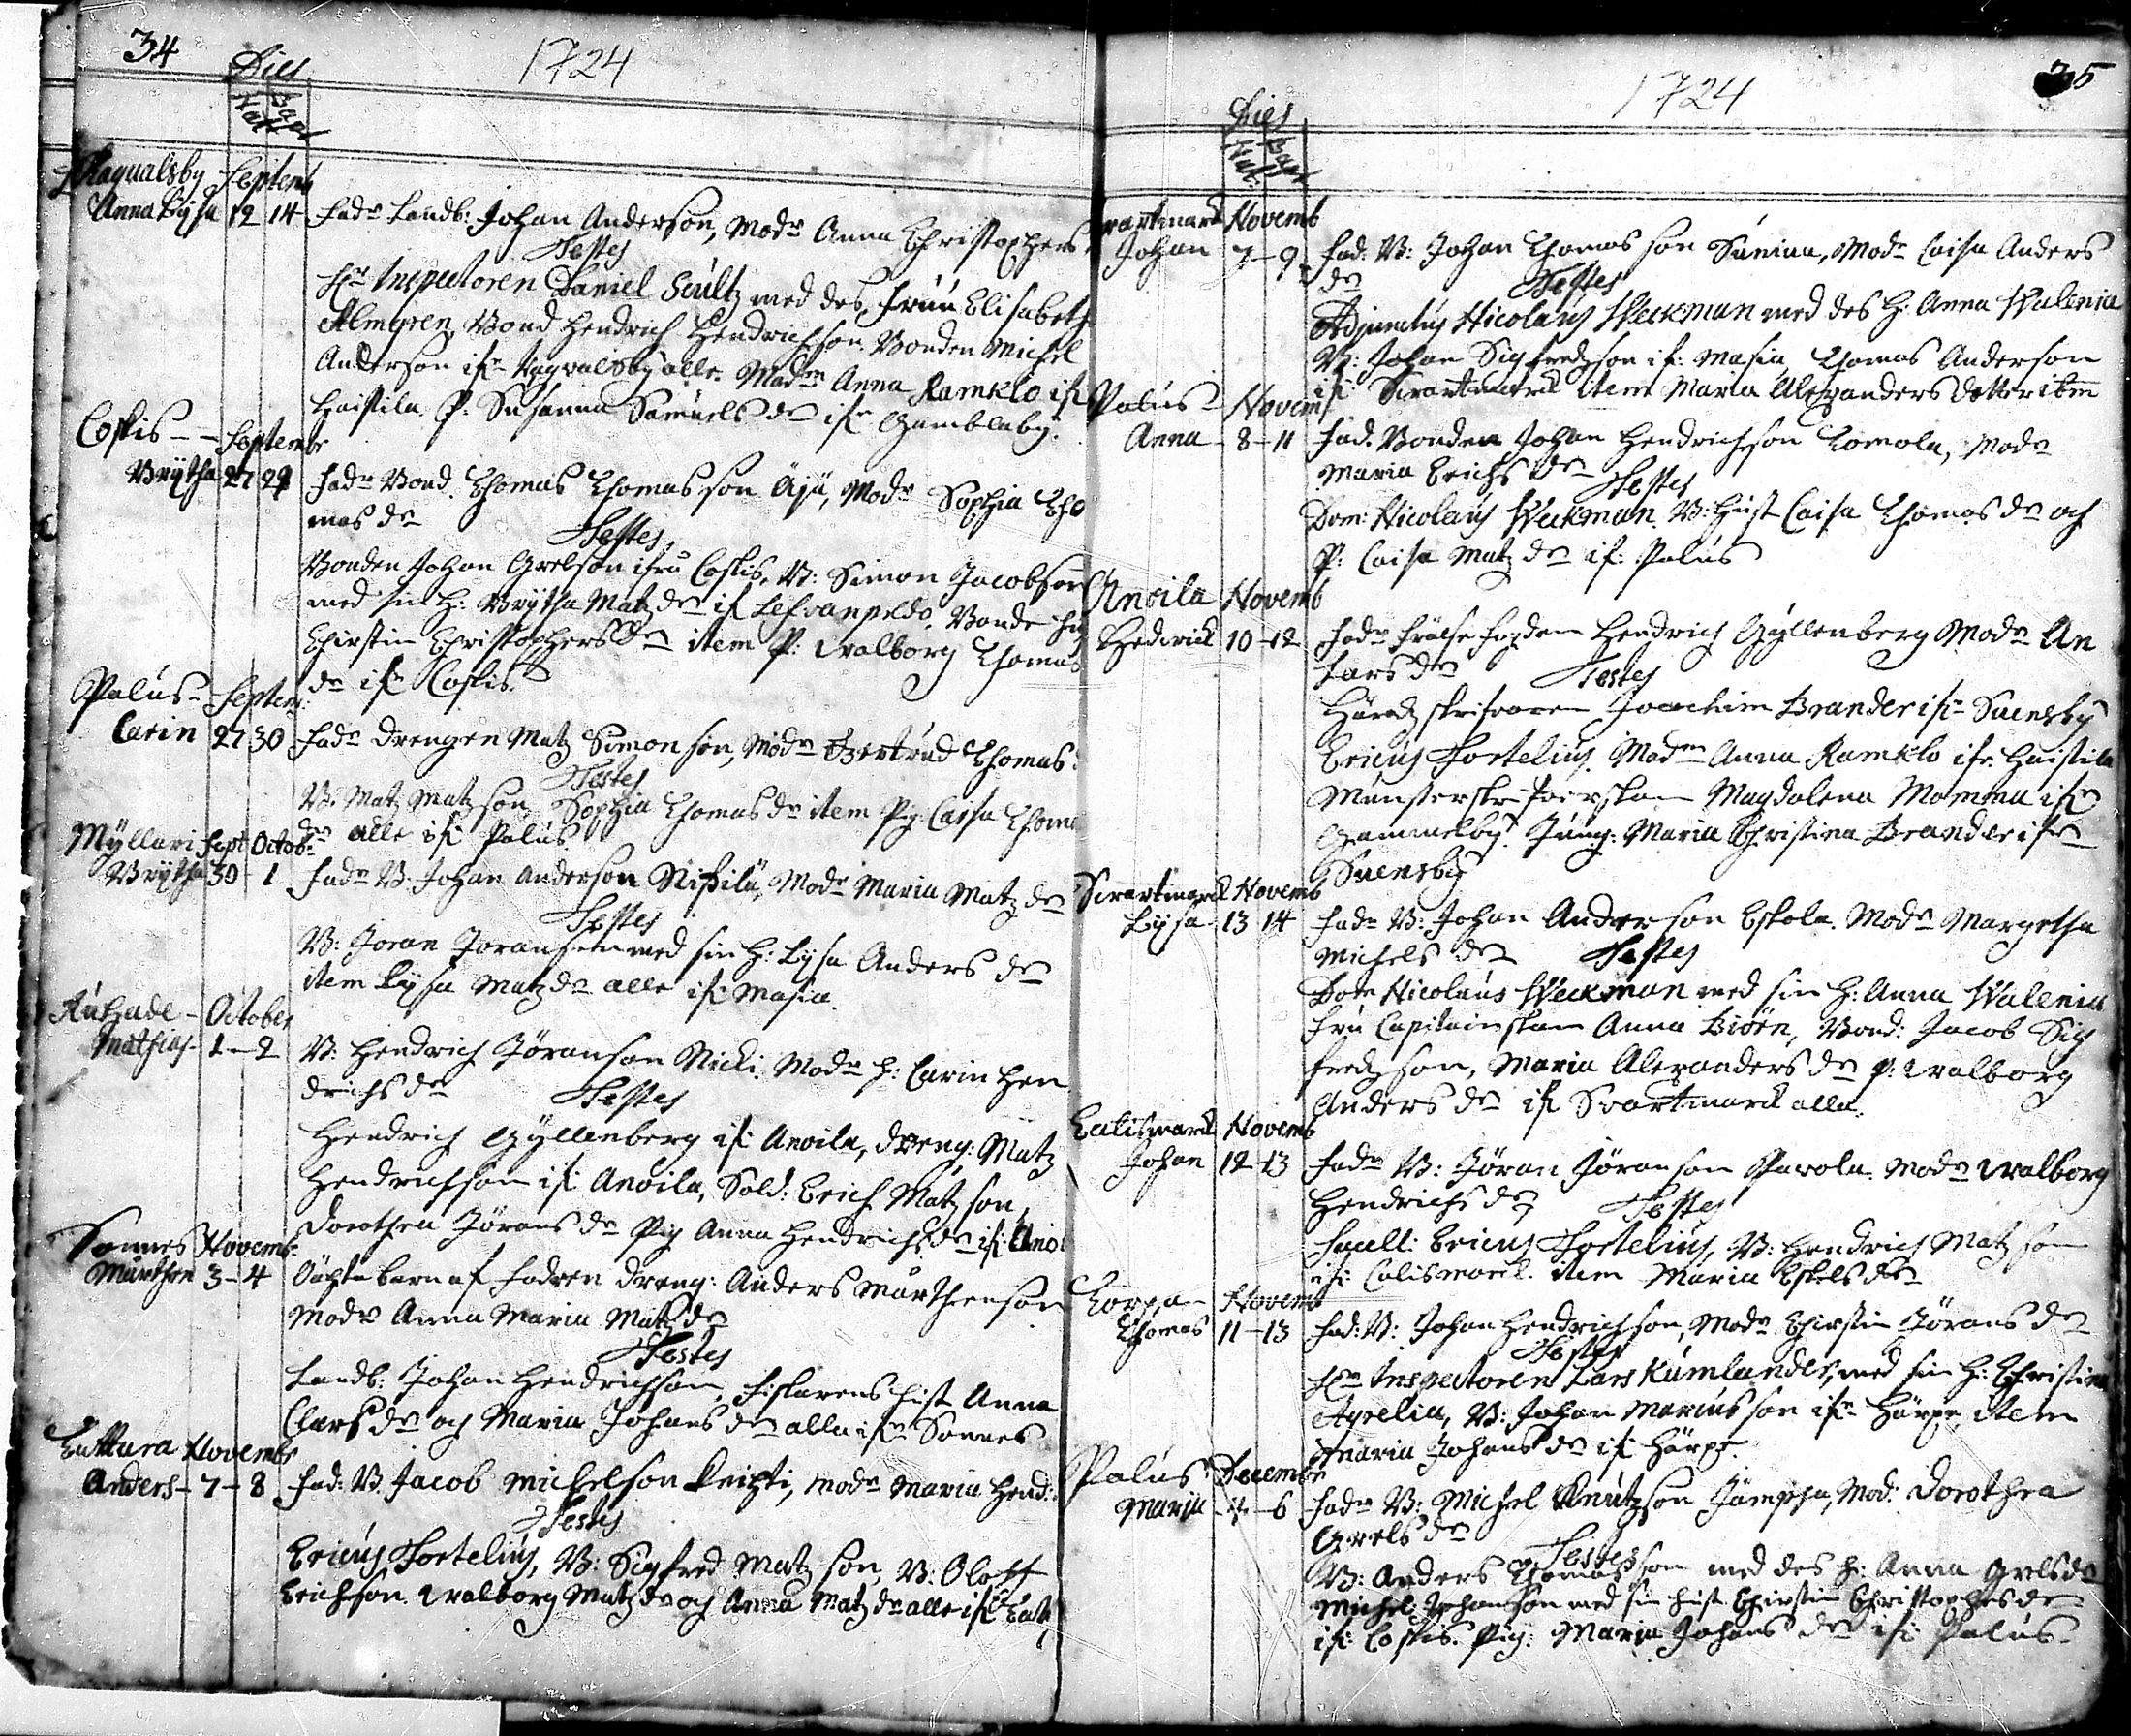 34
1724
Dies
Nat Bapt
Ragualsby Septemb
Anna Lÿsa 12 14 Fadr Landb: Johan Anderson, Modr Anna Christophers
Testes
Hr Inspectoren Daniel Scultz med des Fruu Elisabeth
Almgren, Bond Hendrich Hendrichson. Bonden Michel
Anderson ifr Ragvalsby alle. Madm Anna Ramklo if
Haistila. P: Susanna Samuels dr ifr Gambleby.
Coskis - - Septembr
Brÿtha 27 29 Fadr Bond. Thomas Thomasson Äjä, Modr Sophia Tho
mas dr
Testes,
Bonden Johan Grelson ifrå Coskis, B: Simon Jacobson
med sin H: Brÿtha Matz dr if
Christin Christophers dr item P: Walborg Thomas
dr ifr Coskis.
Palus - Septem:
Carin 27 30 Fadr Drengen Matz Simonson, Modr Gertrud Thomas
Testes
B: Matz Matzson, Sophia Thomas dr item Pig: Caisa Thoms
dr alle ifr Palus
Mÿllari Sept Octob:
Brÿtha 30 - 1 Fadr B. Johan Anderson Nissilä, Modr Maria Matz dr
Testes
B: Joran Joranson med sin H: Lÿsa Anders dr
item Lÿsa Matz dr alle ifr Masia.
October
Mathias - 1 - 2 B: Hendrich Jöranson Nicki. Modr H: Carin Hen
drichs dr
Testes
Hendrich Gÿllenberg if: Anoila, Dreng: Matz
Hendrichson if: Anoila, Sold: Erich Matzson,
Dorothea Jörans dr Pig Anna Hendrichs dr if: Anoi
Sonnes Novemb:
Mårthen 3 - 4 Oächta barn af Fadren Dreng: Anders Mårthenson
Modr Anna Maria Matz dr
Testes
Landb: Johan Hendrichson, Fiskarens Hust Anna
Clars dr och Maria Johans dr alla ifr Sonnes
Lattura Novembr
Anders - 7 - 8 Fad: B. Jacob Michelson Knihti, Modr Maria Hend:
Testes
Ericus Fortelius, B: Sigfred Matzson, B: Oloff
Erichson. Walborg Matz dr och Anna Matz dr alle ifr Latt
35
1724
Dies
Nat. Bapt
Swartmarck Novemb
Johan 7 - 9 Fad: B: Johan Thomasson Suninn, Modr Caisa Anders
dr
Testes
Adjunctus Nicolaus Weckman med des H: Anna Walenia
B: Johan Sigfredzson if: Masia, Thomas Anderson
if: Swartmarck item Maria Alexanders dotter ibm
Palus - Novemb
Anna - 8 - 11 Fad. Bonden Johan Hendrichson Tomola, Modr
Maria Erichs dr
Testes
Dom: Nicolaus Weckman. B: Hust Caisa Thomas dr och
P: Caisa Matz dr if: Palus
Anoila Novemb
Hedwick 10 - 12 Fadr Frälse fogden Hendrich Gÿllenberg Modr An
Lars dr
Testes
Häradzskrifvaren Joachim Brander ifr Suensby
Ericus Fortelius. Madm Anna Ramklo ifr. Haistila
Munsterskrifverskan Magdalena Momma ifr
Gammelby. Jung: Maria Christina Brander ifr
Suensby
Swartmarck Novemb
Lÿsa - 13 14 Fadr B: Johan Anderson Eskola. Modr Margetha
Michels dr
Testes
Dom Nicolaus Weckman med sin H: Anna Walenia
Fru Capitainskan Anna Biörn, Bond: Jacob Sig
fredzson, Maria Alexanders dr P: Walborg
Anders dr if Svartmarck alla.
Calismarck Novemb
Johan 12 - 13 Fadr B: Jöran Jöranson Pavola. Modr Walborg
Hendrichs dr
Testes
Sacell: Ericus Fortelius, B: Hendrich Matzson
if: Calismarck. item Maria Eskels dr
Novemb
Thomas 11 - 13 Fad: B: Johan Hendrichson, Modr Christin Jörans dr
Testes
Hr Inspectoren Lars Kumlander, med sin H: Christina
Agrelia, B: Johan Mariusson ifr Härpe item
Maria Johans dr if Härpe.
Palus Decembr
Maria - 4 - 6 Fadr B: Michel Knutzson Jämpsa, Mod: Dorothea
Grels dr
Testes
B: Anders Thomasson med des H: Anna Grels dr
Michel Johanson med sin Hust Christin Christophers dr
if: Coskis. Pig: Maria Johans dr if: Palus.